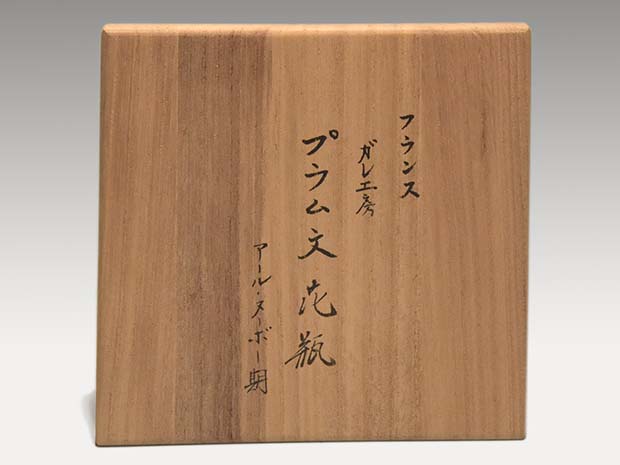 フランス
ガレ工房
プラム文花瓶
アール・ヌーボー期